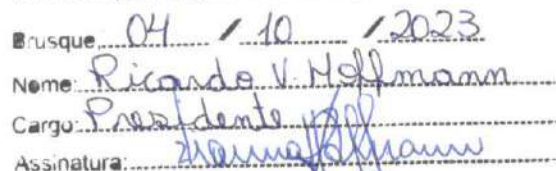 Brusque, 04 / 10 / 2023
Nome: Ricardo V. Hoffmann
Cargo: Presidente
Assinatura: